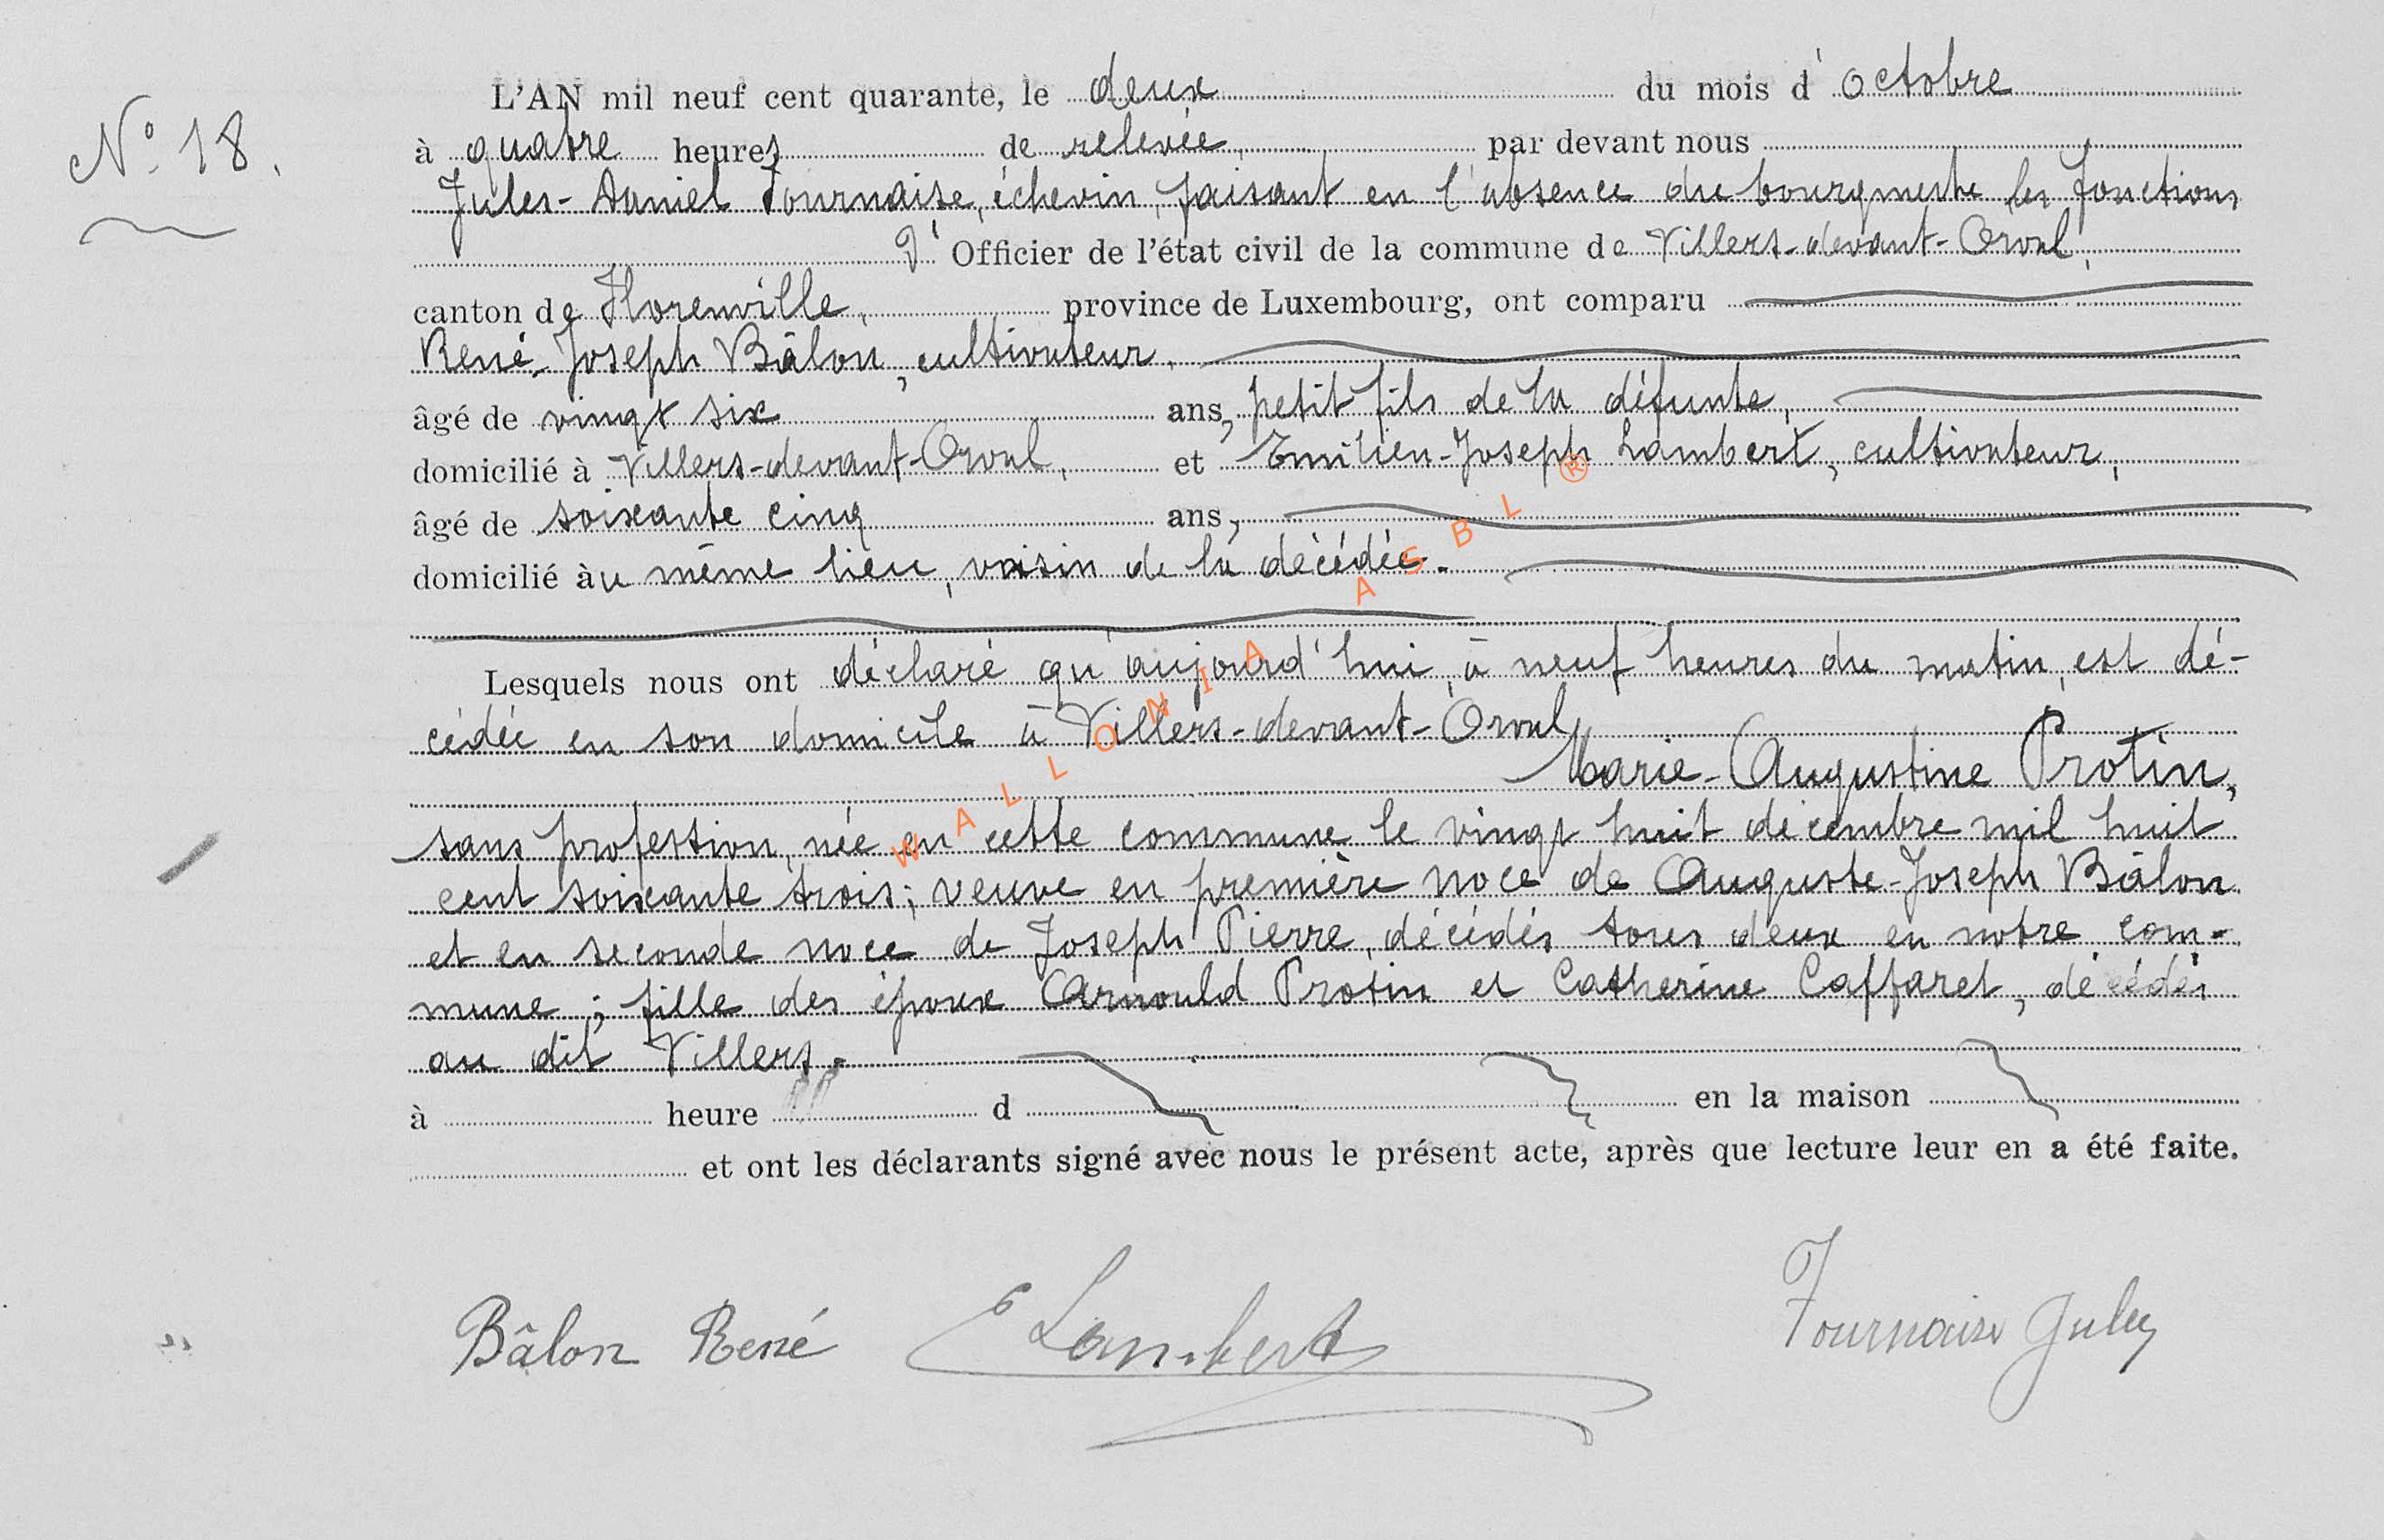 N° 18.
L'AN mil neuf cent quarante, le deux du mois d'octobre
à quatre heures de relevée, par devant nous
Jules-Daniel Fournaise, échevin, faisant en l'absence du bourgmestre les fonctions
d'Officier de l'état civil de la commune de Villers-devant-Orval,
canton de Florenville, province de Luxembourg, ont comparu
René-Joseph Bâlon, cultivateur,
âgé de vingt six ans, petit fils de la défunte,
domicilié à Villers-devant-Orval, et Emilien-Joseph Lambert, cultivateur,
âgé de soixante cinq ans,
domicilié au même lieu, voisin de la décédée.
Lesquels nous ont déclaré qu'aujourd'hui, à neuf heures du matin, est dé-
cédée en son domicile à Villers-devant-Orval
Marie-Augustine Protin,
sans profession, née en cette commune le vingt huit décembre mil huit
cent soixante trois; veuve en première noce de Auguste-Joseph Bâlon
et en seconde noce de Joseph Pierre, décédés tous deux en notre com-
mune; fille des époux Arnould Protin et Catherine Caffaret, décédés
au dit Villers.
à heure d en la maison
et ont les déclarants signé avec nous le présent acte, après que lecture leur en a été faite.
Bâlon René E Lambert Fournaise Jules
WALLONIA ASBL ®